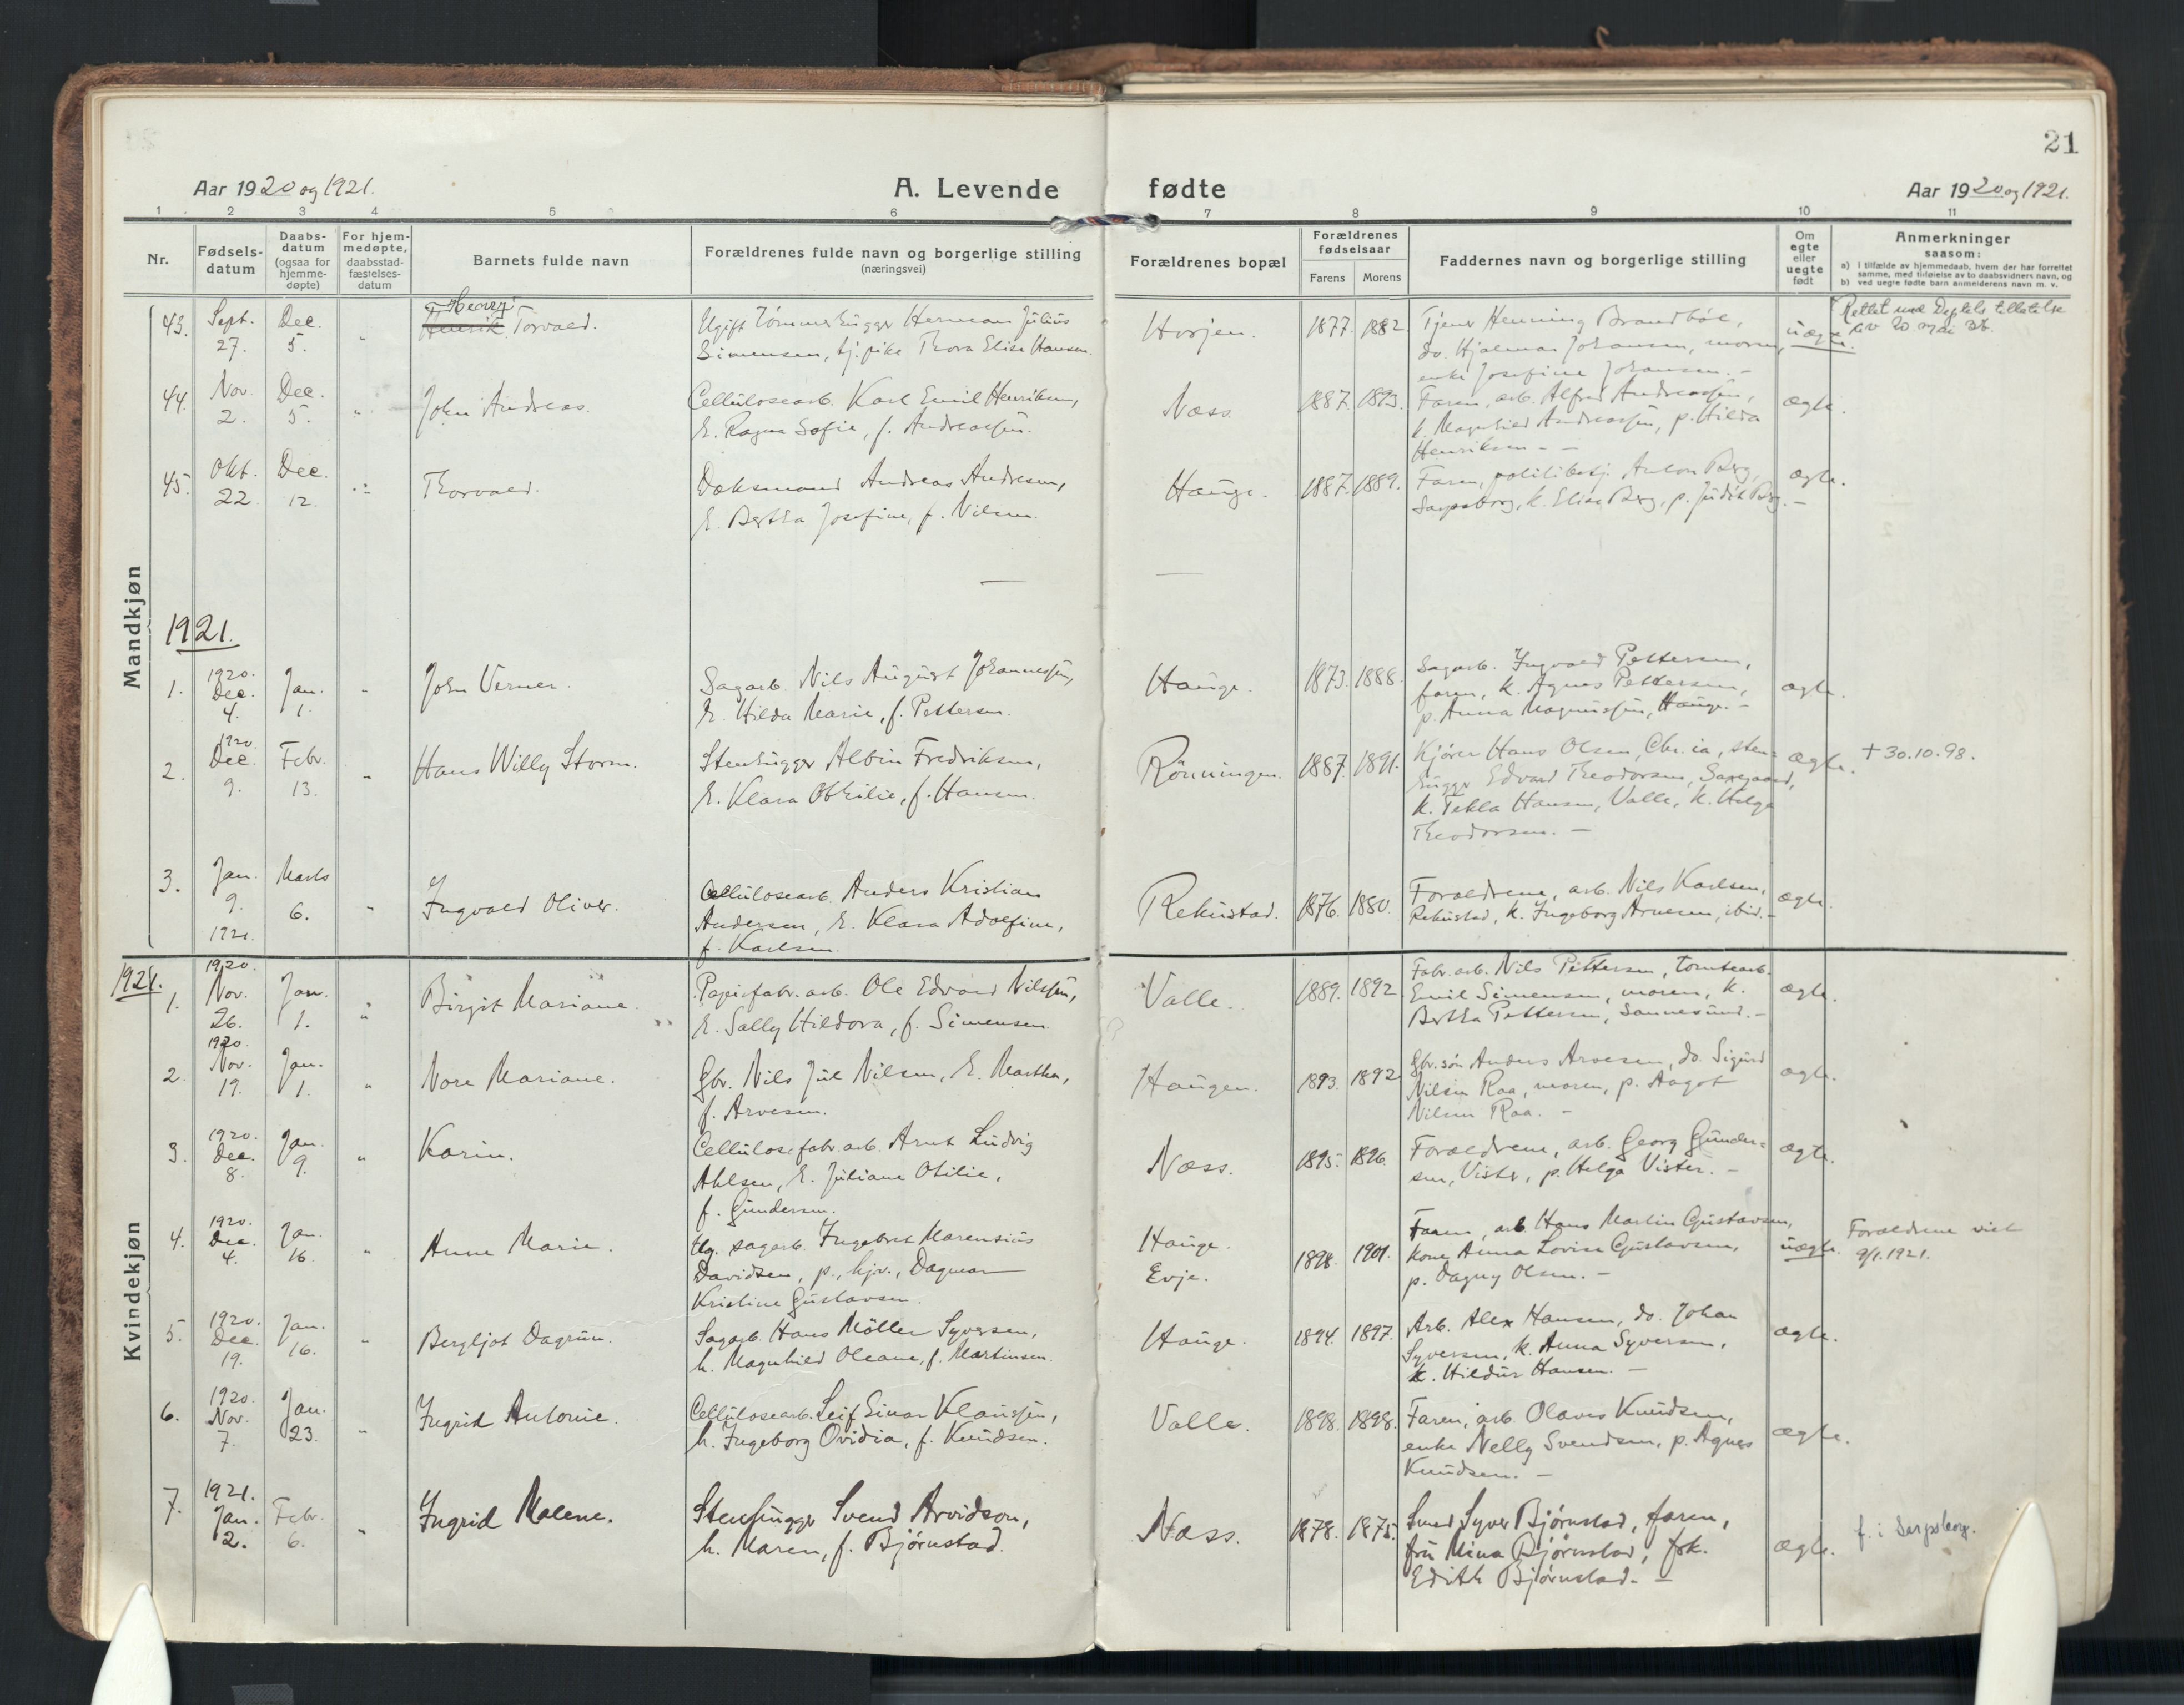 21
Aar 1920 og 1921.
A. Levende fødte
Aar 1920 og 1921.
1 2 3 4 5 6 7 8 9 10 11
Nr.
Fødsels-
datum
Daabs-
datum
(ogsaa for
hjemme-
døpte)
For hjem-
medøpte,
daabsstad-
fæstelses-
datum
Barnets fulde navn
Forældrenes fulde navn og borgerlige stilling
(næringsvei)
Forældrenes bopæl
Forældrenes
fødselsaar
Farens Morens
Faddernes navn og borgerlige stilling
Om
egte
eller
uegte
født
Anmerkninger
saasom:
a) I tilfælde av hjemmedaab, hvem der har forrettet
samme, med tilføielse av to daabsvidners navn, og
b) ved uegte fødte barn anmelderens navn m. v.
Mandkjøn
43. Sept. 27. Dec. 5. "
Henry
Henrik Torvald.
Ugift Tømmerhugger Herman Julius
Simensen, tj. pike Thora Elise Hansen.
Hvrjen. 1877. 1882.
Tjener Henning Brandbøl,
do. Hjalmar Johansen, moren,
enke Josefine Johansen. -
uægte.
Rettet med Deptets tillatelse
av 20 mai 36.
44. Nov. 2. Dec. 5. "
John Andreas.
Cellulosearb. Karl Emil Henriksen,
h. Ragna Sofie, f. Andreassen.
Næss. 1887. 1893.
Faren, arb. Alfred Andreassen,
k. Magnhild Andreassen, p. Hilda
Henriksen - -
ægte.
45. Okt. 22. Dec. 12. "
Thorvald.
Dæksmand Andreas Andresen,
h. Bertha Josefine, f. Nilsen.
Hauge. 1887. 1889.
Faren, politibetj. Anton Berg,
Sarpsborg, k. Elise Berg, p. Judith Berg. -
ægte.
1921.
1. 1920. Dec. 4. Jan. 1. "
John Verner.
Sagarb. Nils August Johannessen,
h. Hilda Marie, f. Pettersen.
Hauge. 1873. 1888.
Sagarb. Ingvald Pettersen,
faren, k. Agnes Pettersen,
p. Anna Magnussen, Hauge. -
ægte.
2. 1920. Dec. 9. Febr. 13. "
Hans Willy Storm.
Stenhugger Albin Fredriksen,
h. Klara Othilie, f. Hansen.
Rönningen. 1887. 1891.
Kjører Hans Olsen, Chr.ia, sten-
hugger Edvard Theodorsen, Saxegaard,
k. Tekla Hansen, Valle, k. Helga
Theodorsen. -
ægte.
+ 30.10.98.
3. Jan. 9. 1921. Marts 6. "
Ingvald Oliver.
Cellulosearb. Anders Kristian
Andersen, h. Klara Adolfine,
f. Karlsen.
Rekustad. 1876. 1880.
Forældrene, arb. Nils Karlsen,
Rekustad, k. Ingeborg Arnesen, ibid. -
ægte.
Kvindekjøn
1921.
1. 1920. Nov. 26. Jan. 1. "
Birgit Mariane.
Papirfabr. arb. Ole Edvard Nilssen,
h. Sally Hildora, f. Simensen.
Valle. 1889. 1892.
Fabr. arb. Nils Pettersen, tomtearb.
Emil Simensen, moren, k.
Bertha Pettersen, Sannesund. -
ægte.
2. 1920. Nov. 19. Jan. 1. "
Nore Mariane.
Gbr. Nils Jul Nilsen, h. Martha,
f. Arvesen.
Haugen. 1893. 1892
Gbr. søn Anders Arvesen, do. Sigurd
Nilsen Raa, moren, p. Aagot
Nilsen Raa. -
ægte.
3. 1920. Dec. 8. Jan. 9. "
Karin.
Cellulosefabr. arb. Arnt Ludvig
Ahlsen, h. Juliane Otilie,
f. Gundersen.
Næss. 1895. 1896.
Forældrene, arb. Georg Gunder-
sen, Vister, p. Helga Vister. -
ægte.
4. 1920. Dec. 4. Jan. 16. "
Anne Marie.
Ug. sagarb. Ingebret Marensius
Davidsen, p., hjv., Dagmar
Kristine Gustavsen.
Hauge.
Evje.
1898. 1901.
Faren, arb. Hans Martin Gustavsen,
kone Anna Lovise Gustavsen,
p. Dagny Olsen. -
uægte.
Forældrene viet
9/1.1921.
5. 1920. Dec. 19. Jan. 16. "
Bergljot Dagrun.
Sagarb. Hans Möller Syversen,
h. Magnhild Oleane, f. Martinsen.
Hauge. 1894. 1897.
Arb. Alex Hansen, do. Johan
Syversen, k. Anna Syversen,
k. Hildur Hansen. -
ægte.
6. 1920. Nov. 7. Jan. 23. "
Ingrid Antonie.
Cellulosearb. Leif Einar Klaussen,
h. Ingeborg Ovidia, f. Knudsen.
Valle. 1898. 1898.
Faren, arb. Olaves Knudsen,
enke Nelly Svendsen, p. Agnes
Knudsen. -
ægte.
7. 1921. Jan. 2. Febr. 6. "
Ingrid Malene.
Stenhugger Svend Arvidson,
h. Maren, f. Bjørnstad.
Næss. 1878. 1875.
Smed Syver Bjørnstad, faren,
fru Mina Bjørnstad, frk.
Edith Bjørnstad. -
ægte.
f. i Sarpsborg.